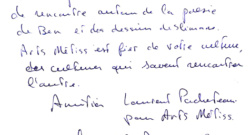 de rencontre autour de la poésie
de Ben et des dessins de Slimane.
Arts Métiss est fier de votre culture,
des cultures qui savent rencontrer
l'autre.
Amitiés Laurent
pour Arts Métiss.